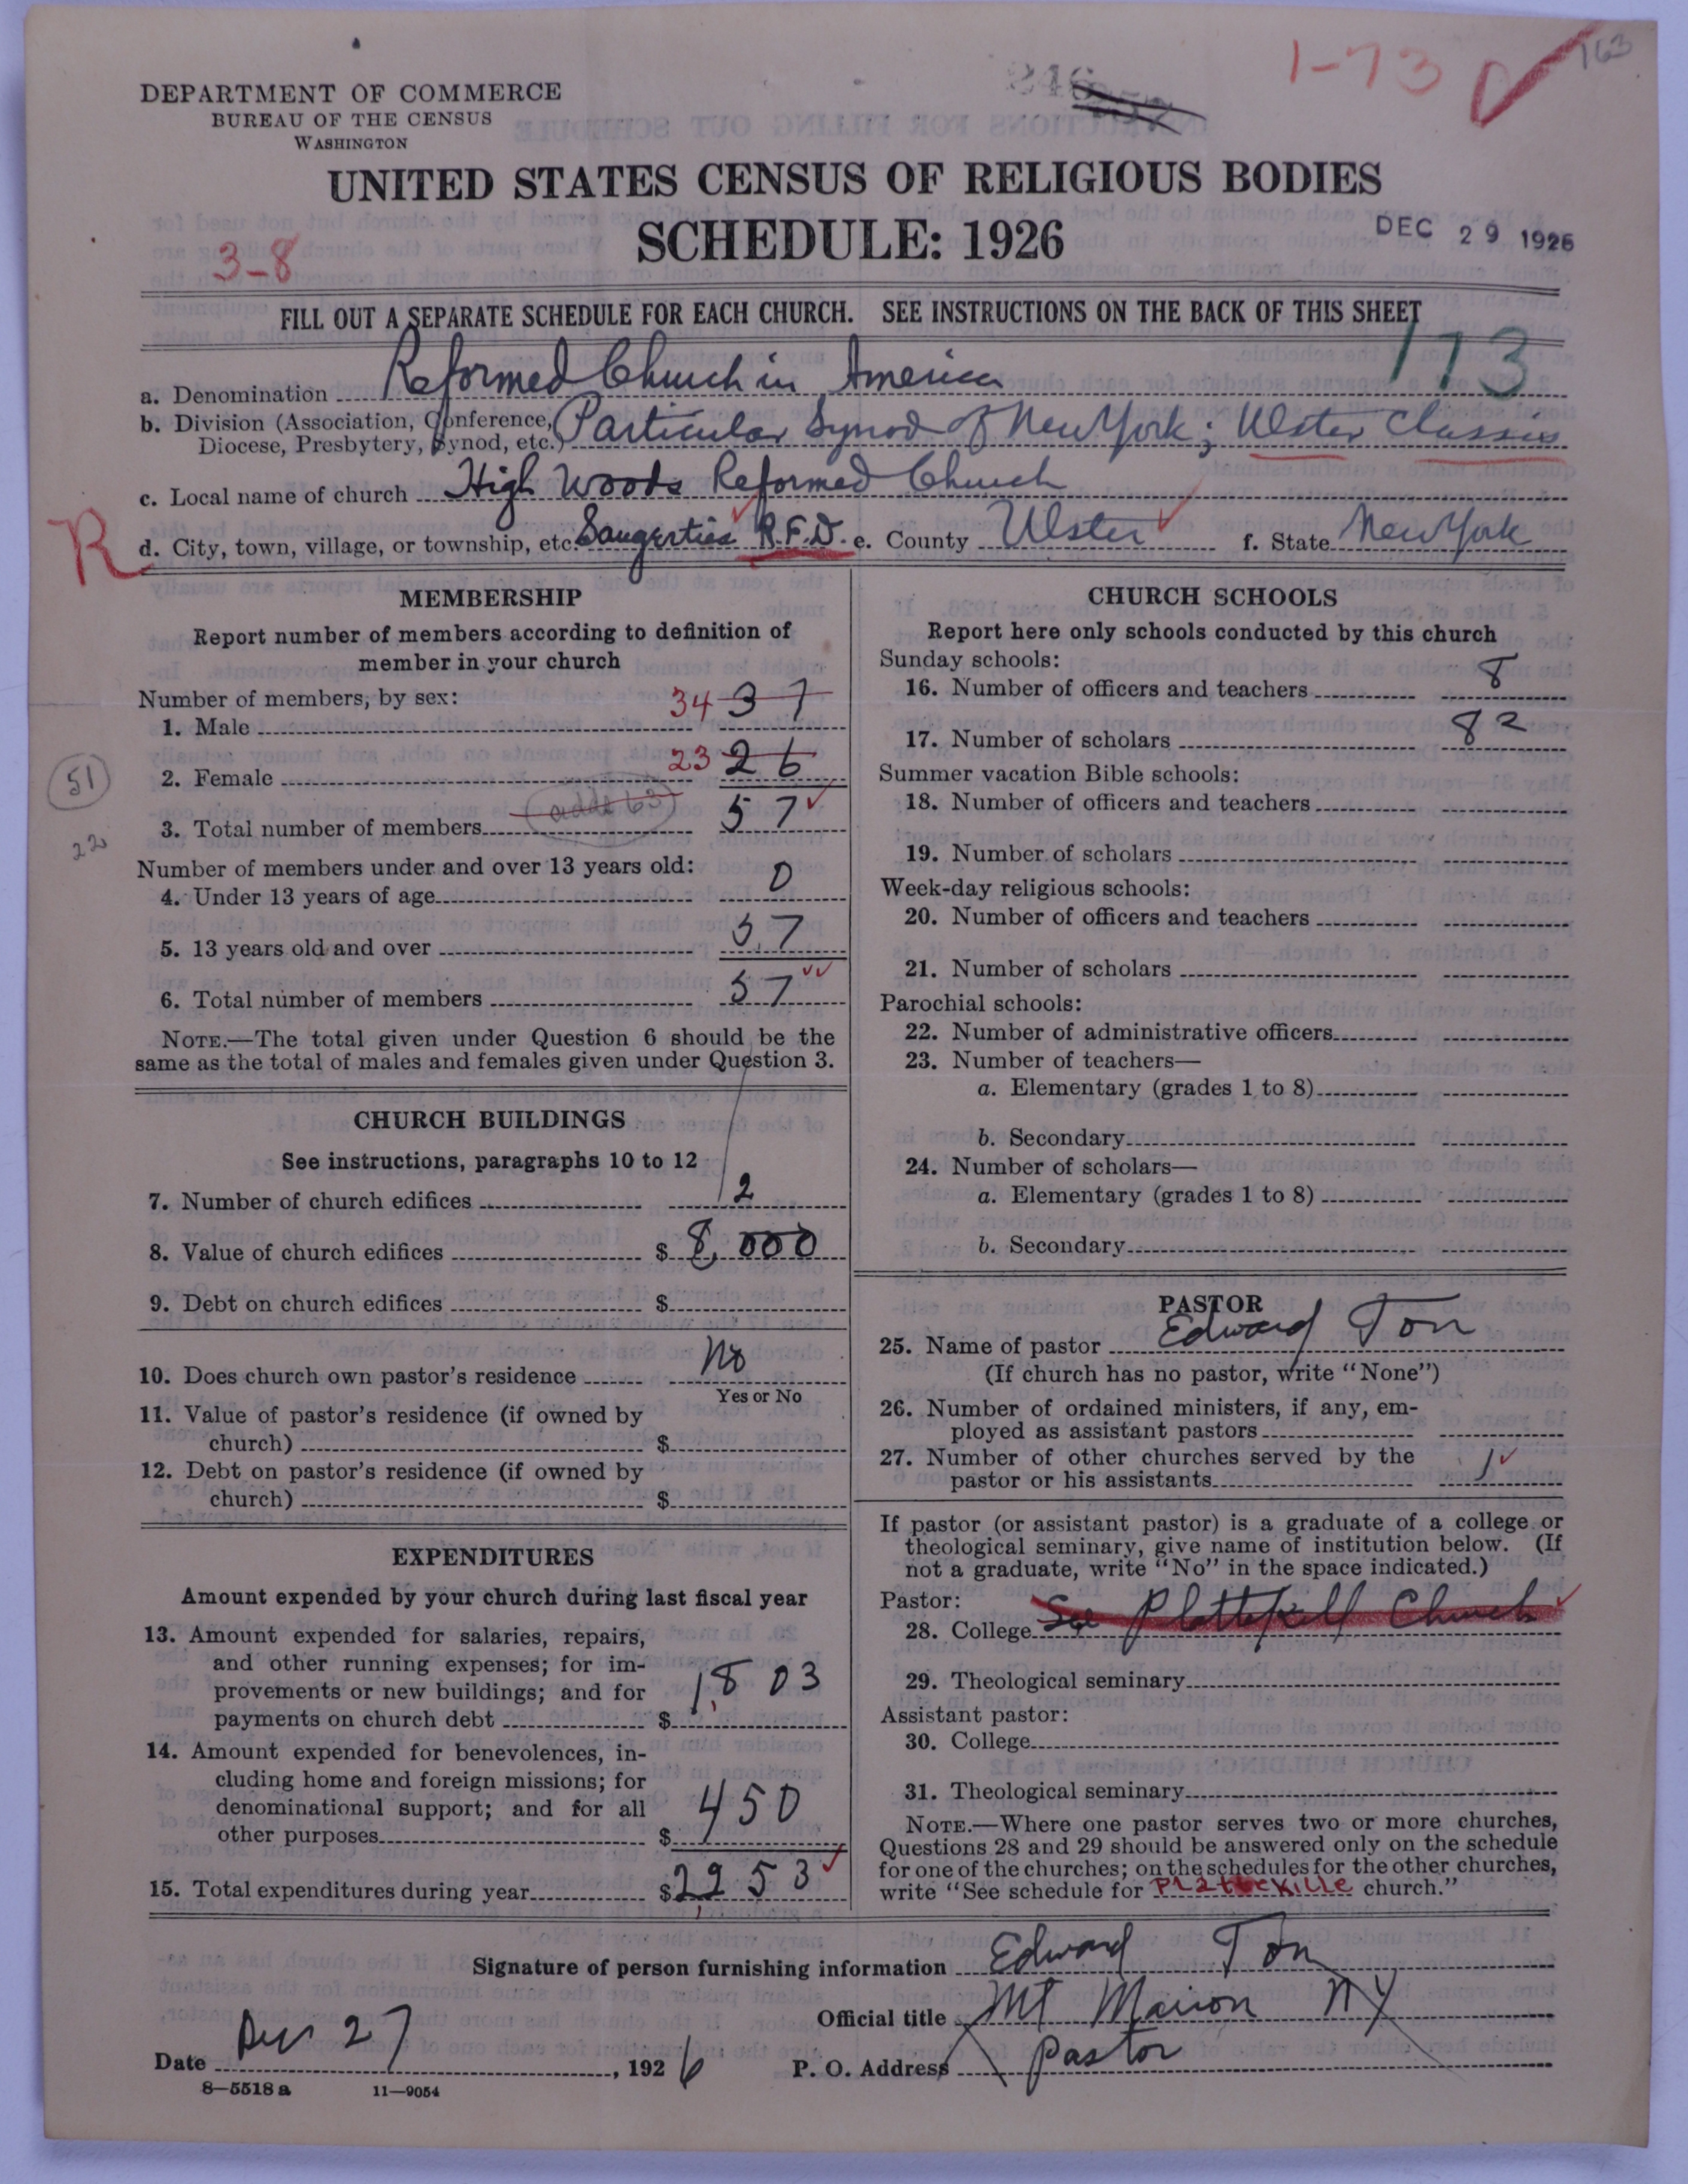 1-73
163
DEPARTMENT OF COMMERCE
BUREAU OF THE CENSUS
WASHINGTON
UNITED STATES CENSUS OF RELIGIOUS BODIES
SCHEDULE: 1926
DEC 29 1926
3-8
FILL OUT A SEPARATE SCHEDULE FOR EACH CHURCH. SEE INSTRUCTIONS ON THE BACK OF THIS SHEET
173
a. Denomination Reformed Church in America
b. Division (Association, Conference, Diocese, Presbytery, Synod, etc.) Particular Synod of New York; Ulster Classis
c. Local name of church High Woods Reformed Church
R
d. City, town, village, or township, etc. Saugerties R.F.D. e. County Ulster f. State New York
MEMBERSHIP
Report number of members according to definition of
member in your church
Number of members, by sex:
1. Male 34 37
2. Female 23 26
51
(adds 63)
3. Total number of members 57
22
Number of members under and over 13 years old:
4. Under 13 years of age 0
5. 13 years old and over 57
6. Total number of members 57
NOTE.—The total given under Question 6 should be the
same as the total of males and females given under Question 3.
CHURCH BUILDINGS
See instructions, paragraphs 10 to 12
7. Number of church edifices 2
8. Value of church edifices $ 8,000
9. Debt on church edifices $
10. Does church own pastor's residence No
Yes or No
11. Value of pastor's residence (if owned by
church) $
12. Debt on pastor's residence (if owned by
church) $
EXPENDITURES
Amount expended by your church during last fiscal year
13. Amount expended for salaries, repairs,
and other running expenses; for im-
provements or new buildings; and for
payments on church debt $ 1,803
14. Amount expended for benevolences, in-
cluding home and foreign missions; for
denominational support; and for all
other purposes $ 450
15. Total expenditures during year $ 2253
CHURCH SCHOOLS
Report here only schools conducted by this church
Sunday schools:
16. Number of officers and teachers 8
17. Number of scholars 82
Summer vacation Bible schools:
18. Number of officers and teachers
19. Number of scholars
Week-day religious schools:
20. Number of officers and teachers
21. Number of scholars
Parochial schools:
22. Number of administrative officers
23. Number of teachers—
a. Elementary (grades 1 to 8)
b. Secondary
24. Number of scholars—
a. Elementary (grades 1 to 8)
b. Secondary
PASTOR
25. Name of pastor Edward Ton
(If church has no pastor, write "None")
26. Number of ordained ministers, if any, em-
ployed as assistant pastors
27. Number of other churches served by the
pastor or his assistants 1
If pastor (or assistant pastor) is a graduate of a college or
theological seminary, give name of institution below. (If
not a graduate, write "No" in the space indicated.)
Pastor:
28. College See Plattekill Church
29. Theological seminary
Assistant pastor:
30. College
31. Theological seminary
NOTE.—Where one pastor serves two or more churches,
Questions 28 and 29 should be answered only on the schedule
for one of the churches; on the schedules for the other churches,
write "See schedule for church."
Signature of person furnishing information Edward Ton
Official title Mt Marion NY
Date Dec 27, 1926 P. O. Address Pastor
8—5518a 11—9054